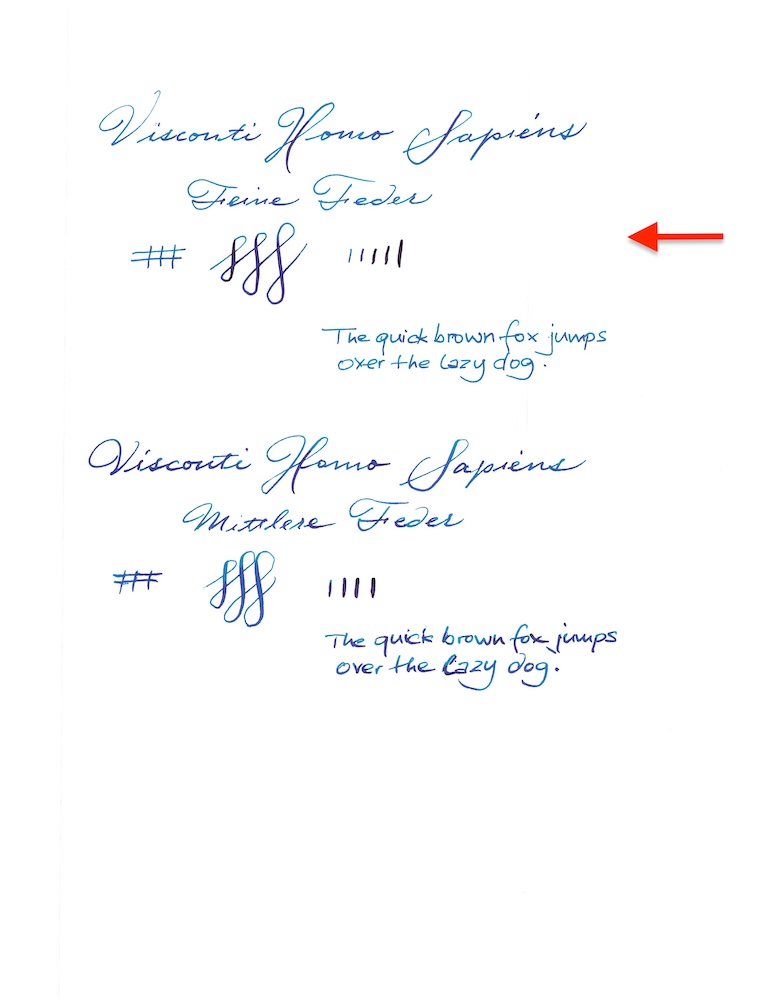 Visconti Homo Sapiéns
Feine Feder
The quick brown fox jumps
over the lazy dog.
Visconti Homo Sapiéns
Mittlere Feder
The quick brown fox jumps
over the lazy dog.